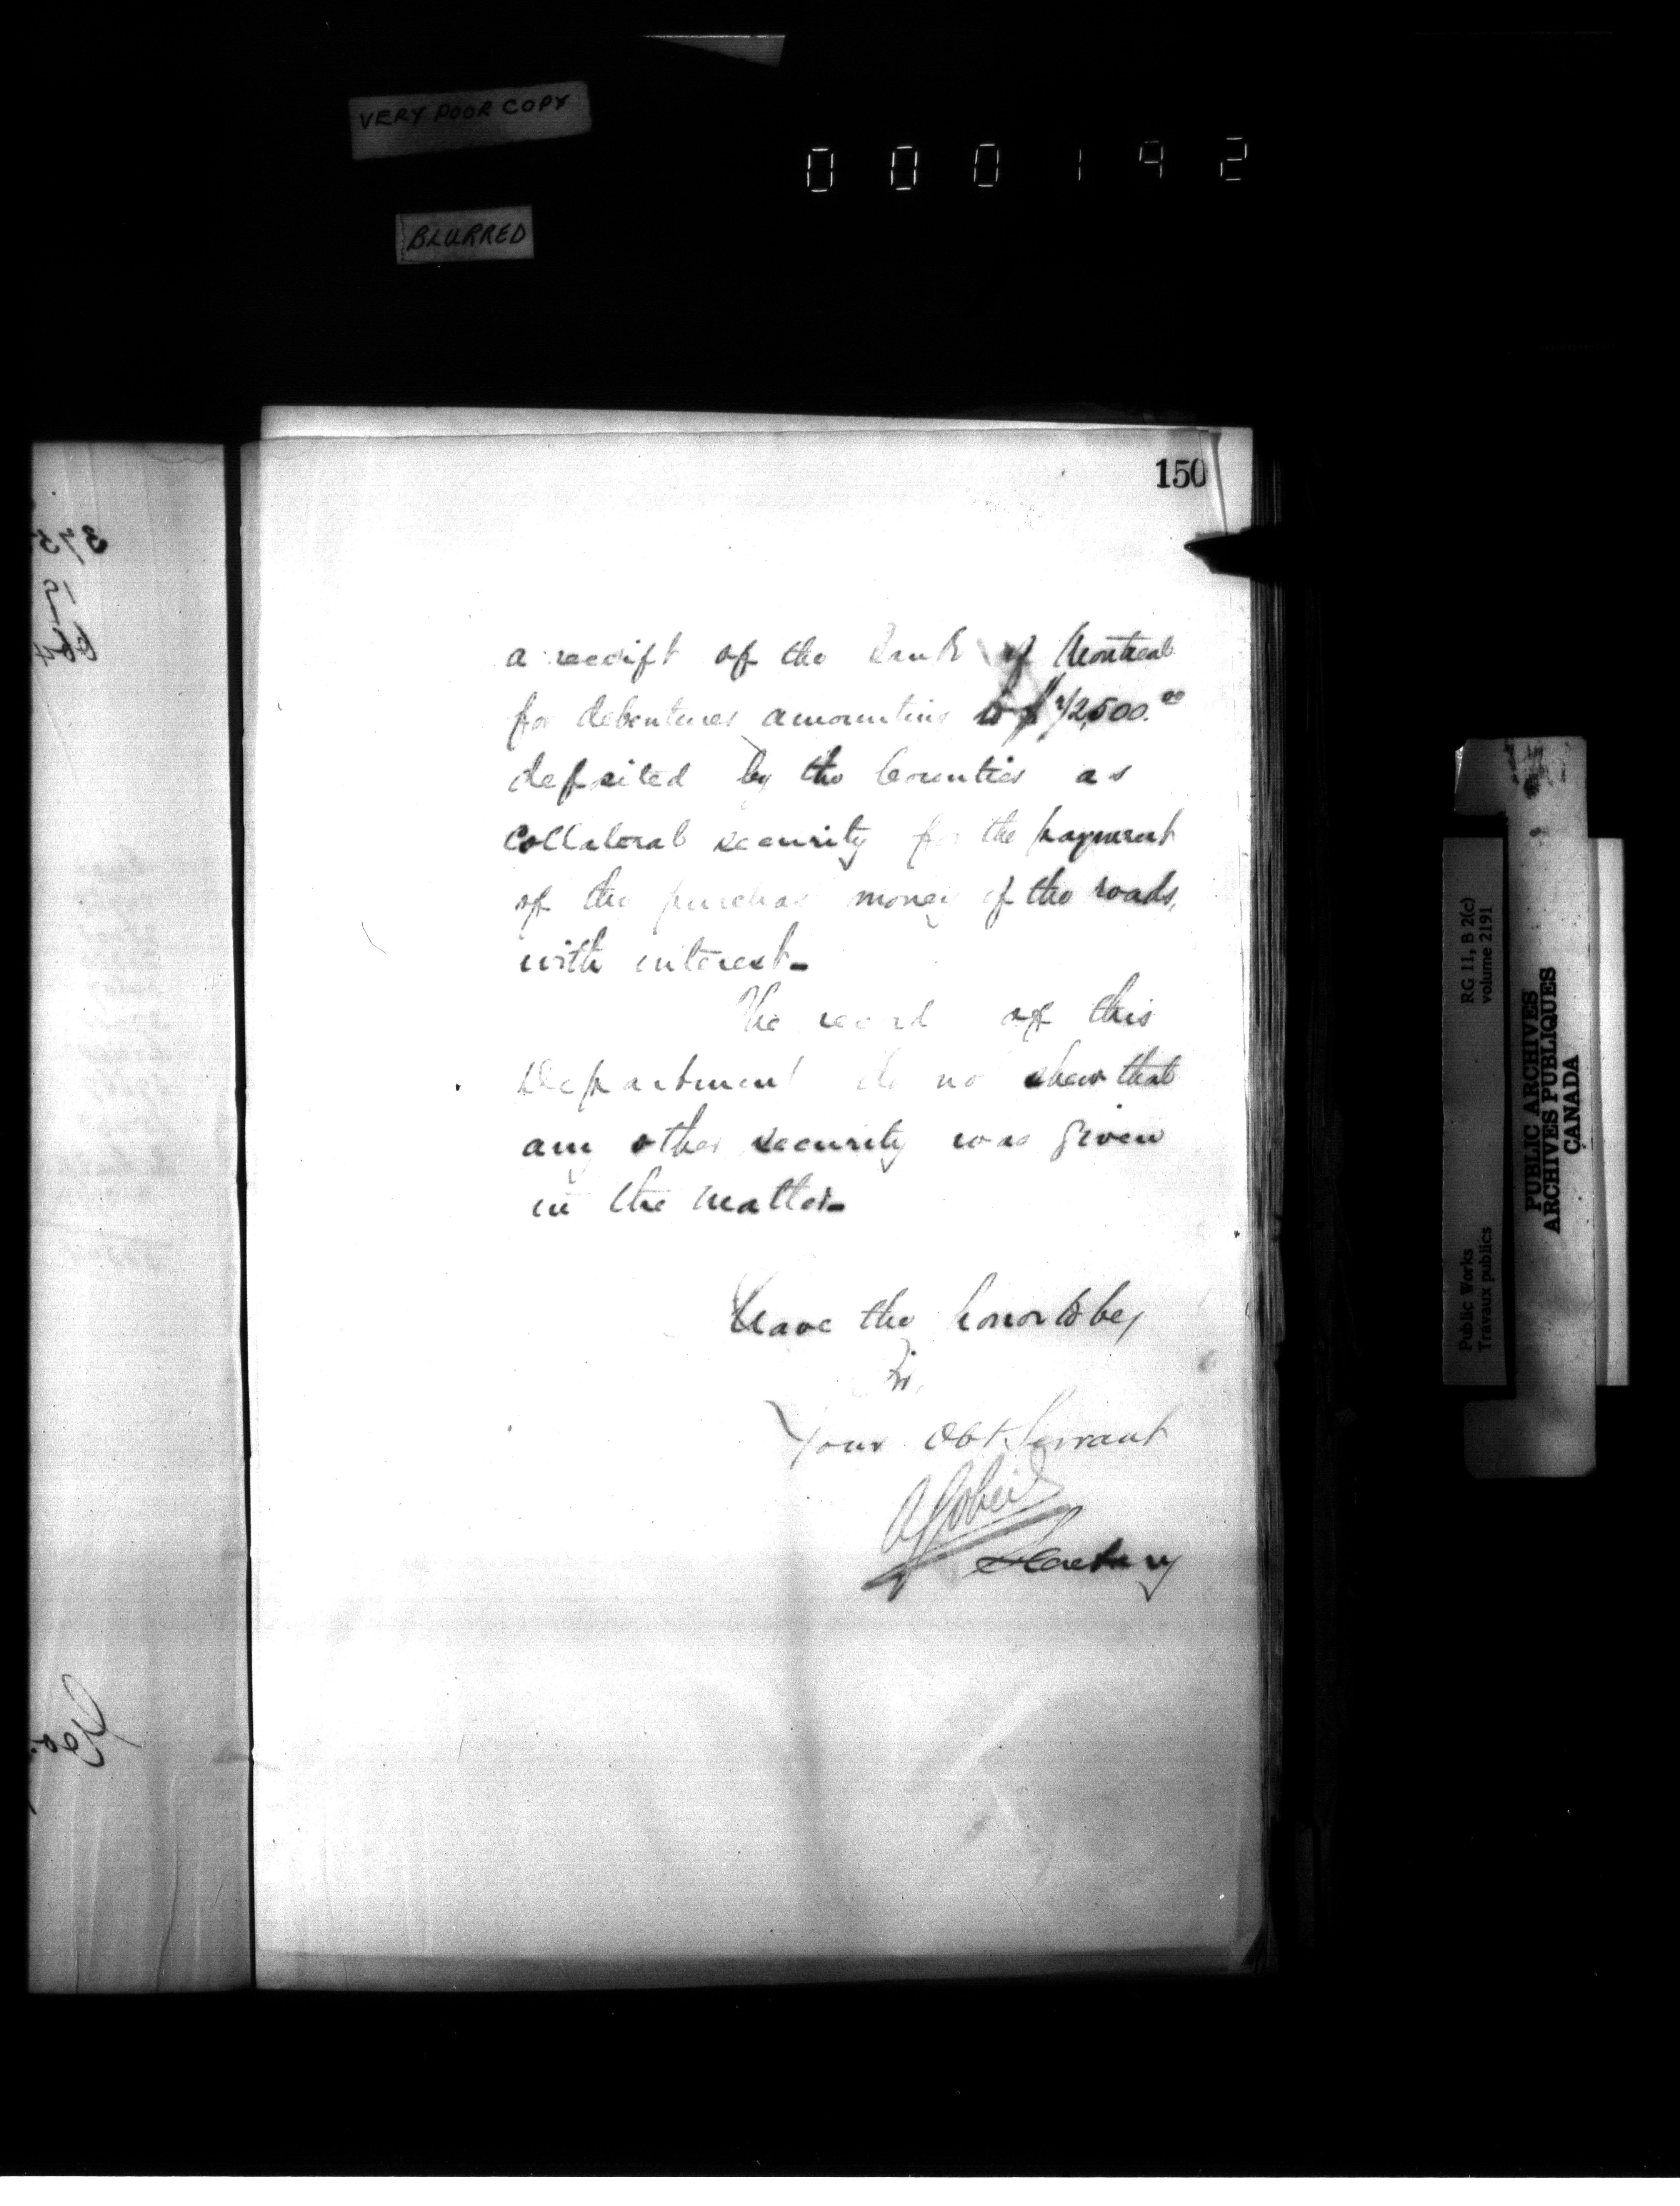 VERY POOR COPY
BLURRED
000192
150
a receipt of the Bank of Montreal
for debentures amounting to $72,500.00
deposited by the Counties as
Collateral security for the payment
of the purchase money of the roads,
with interest-
The record of this
Department do no shew that
any other security was given
in the matter-
have the honor to be,
Sir,
Your Obt Servant
Secretary
RG 11, B 2(c)
volume 2191
Public Works
Travaux publics
PUBLIC ARCHIVES
ARCHIVES PUBLIQUES
CANADA